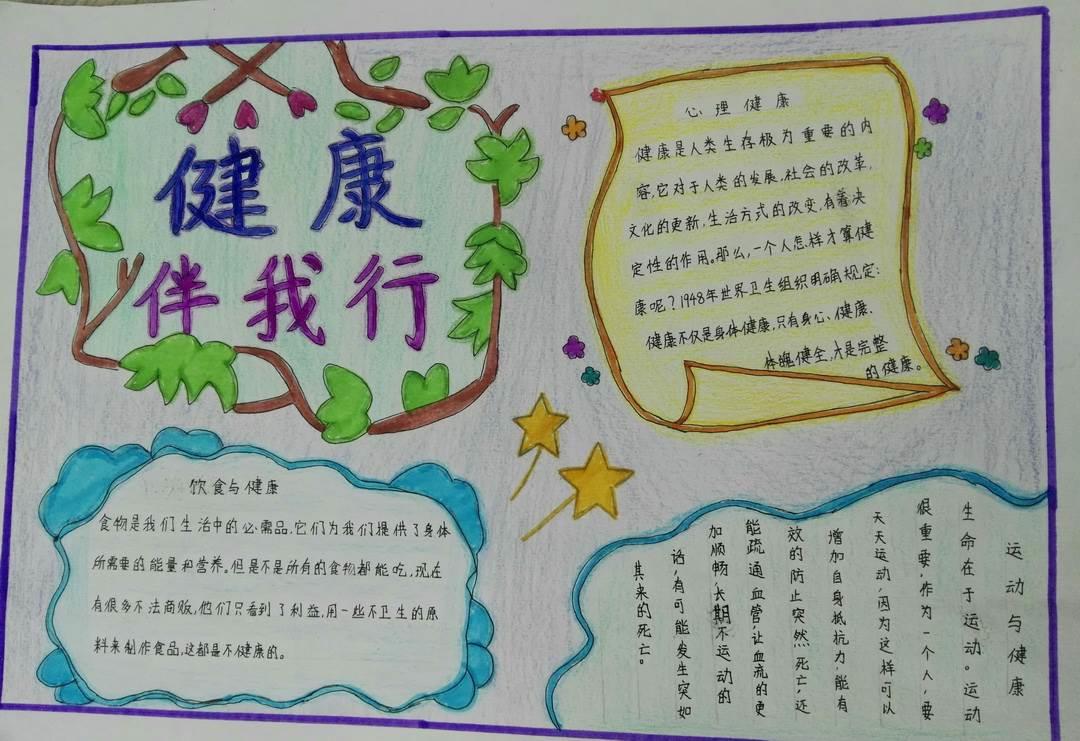 健康
伴我行
心理健康
健康是人类生存极为重要的内
容,它对于人类的发展,社会的改革,
文化的更新,生活方式的改变,有着决
定性的作用。那么,一个人怎样才算健
康呢?1948年世界卫生组织明确规定:
健康不仅是身体健康,只有身心、健康、
体魄健全,才是完整
的健康。
饮食与健康
食物是我们生活中的必需品,它们为我们提供了身体
所需要的能量和营养。但是不是所有的食物都能吃,现在
有很多不法商贩,他们只看到了利益,用一些不卫生的原
料来制作食品,这都是不健康的。
运动与健康
生命在于运动。运动
很重要,作为一个人,要
天天运动,因为这样可以
增加自身抵抗力,能有
效的防止突然死亡,还
能疏通血管,让血流的更
加顺畅,长期不运动的
话,有可能发生突如
其来的死亡。